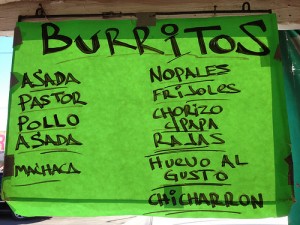 BURRITOS
ASADA
PASTOR
POLLO
ASADA
MACHACA
NOPALES
FRIJOLES
CHORIZO
C/PAPA
RAJAS
HUEVO AL
GUSTO
CHICHARRON